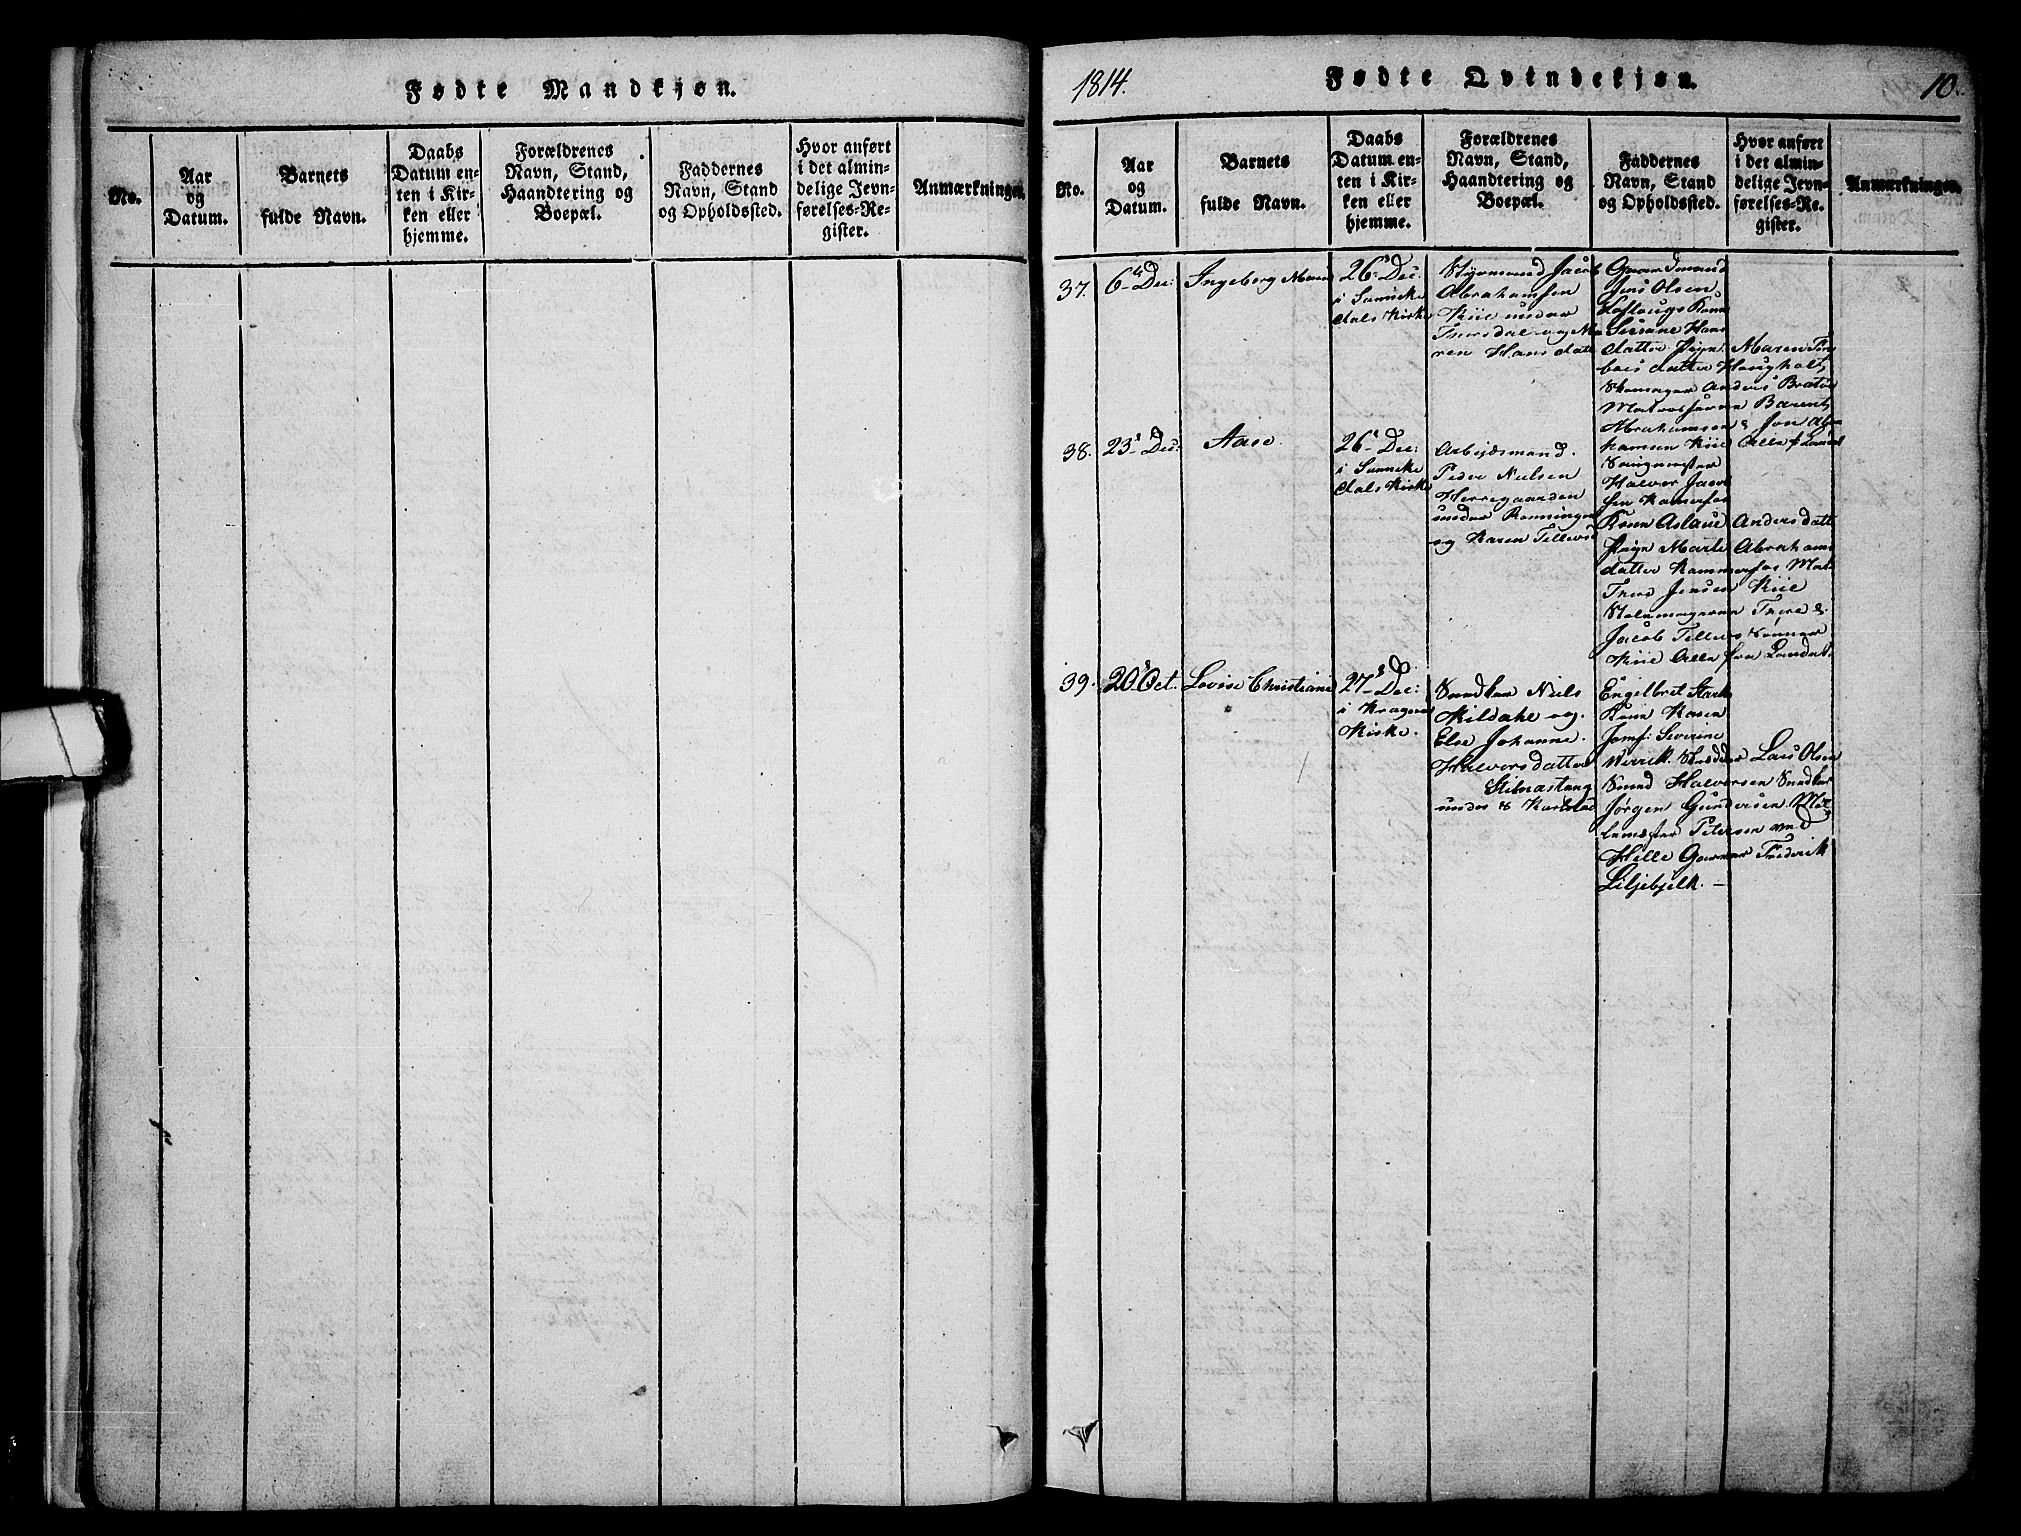 Fødte Mandkjøn.
No.
Aar
og
Datum.
Barnets
fulde Navn.
Daabs
Datum en-
ten i Kir-
ken eller
hjemme.
Forældrenes
Navn, Stand,
Haandtering og
Boepæl.
Faddernes
Navn, Stand
og Opholdssted.
Hvor anført
i det almin-
delige Jevn-
førelses-Re-
gister.
Anmærkninger.
1814.
Fødte Qvindekjøn.
10.
No.
Aar
og
Datum.
Barnets
fulde Navn.
Daabs
Datum en-
ten i Kir-
ken eller
hjemme.
Forældrenes
Navn, Stand,
Haandtering og
Boepæl.
Faddernes
Navn, Stand
og Opholdssted.
Hvor anført
i det almin-
delige Jevn-
førelses-Re-
gister.
Anmærkninger.
37.
6 Dec:
Ingeborg Maren
26 Dec:
i Sannike
dals Kirke
Styrmand Jacob
Abrahamsen
Kiil under
Thorsdal og Ma
ren Hansdatt
Gaardmand
Jens Olsen
Loftougs Kone
Hans
datter Maren Tor
datter Hougholt
Anders Bråten
Matros Barent
Abrahamsen & Jon Abra
hamsen Kiil Alle f Landet
38.
23 Dec:
Aase
26 Dec:
i Sannike
dals Kirke
Arbejdsmand
Peder Nielsen
Herregaarden
under Rønningen
og Karen Tellevsd
Halvor Jacob
sen Kamerfos
Kone Aslaue Anders datt
Marte Abrahams
datter Kammerfos
Thore Jensen Kiil
Thore &
Jacob Tellevs Sønner
Kiil Alle fra Landet.
39.
20 Oct.
Lovise Christiane
27 Dec:
i Kragerøe
Kirke.
Snedker Niels
Kildahl og
Else Johanne
Halvorsdatter
Stilnæstang
under
Engelbret Stark
Kone Karen
Jomf: Severine
Wirrik. Lars Olsen
Smed Halvorsen Snedker
Jørgen Gundersen
Petersen ved
Helle Garver Frederik
Liljebjelk. —